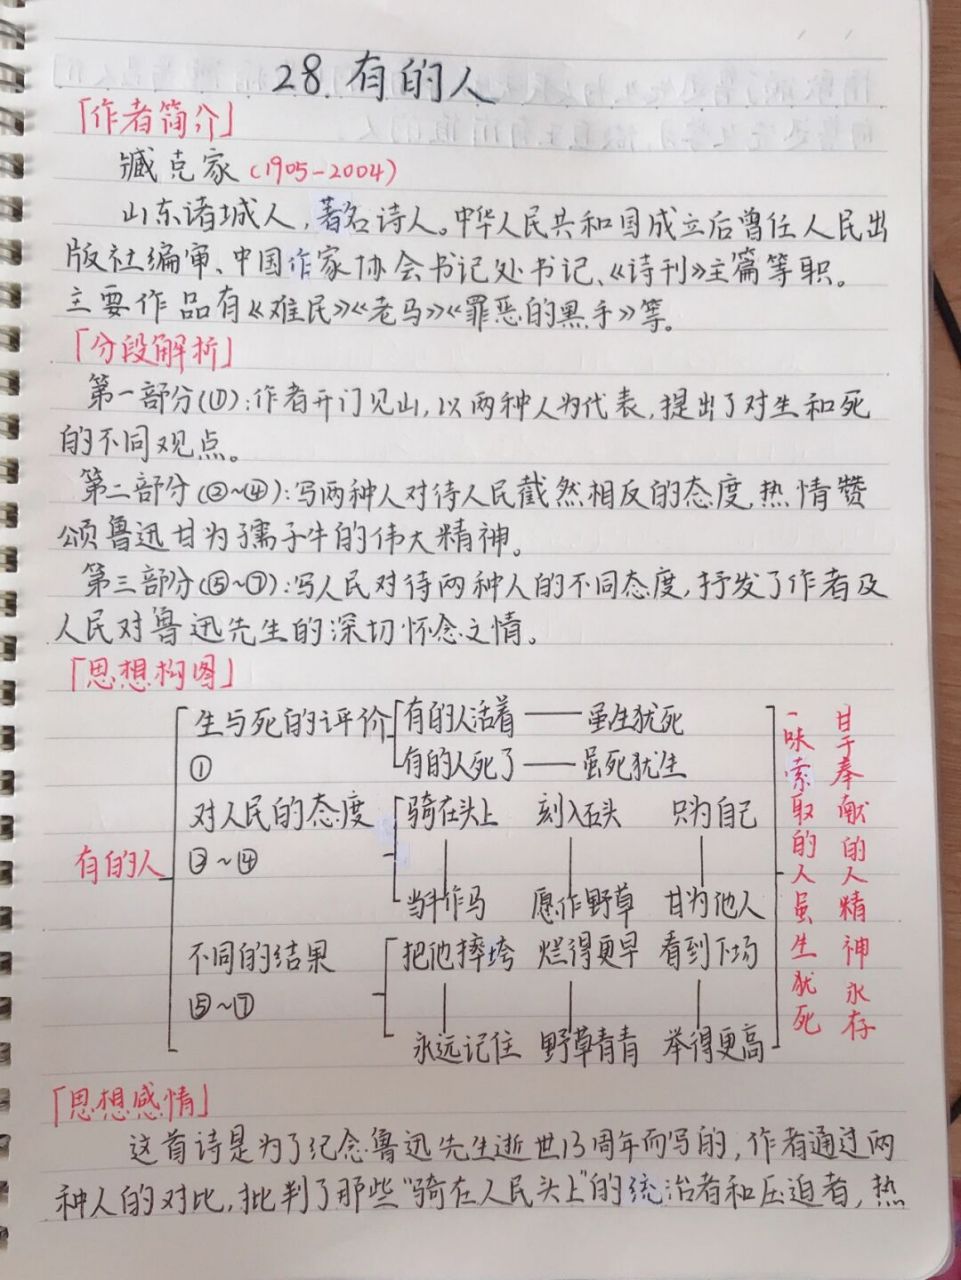 28.有的人
「作者简介」
臧克家(1905-2004)
山东诸城人,著名诗人。中华人民共和国成立后曾任人民出
版社编审、中国作家协会书记处书记、《诗刊》主篇等职。
主要作品有《难民》《老马》《罪恶的黑手》等。
「分段解析」
第一部分(①):作者开门见山,以两种人为代表,提出了对生和死
的不同观点。
第二部分(②~④):写两种人对待人民截然相反的态度,热情赞
颂鲁迅甘为孺子牛的伟大精神。
第三部分(⑤~⑦):写人民对待两种人的不同态度,抒发了作者及
人民对鲁迅先生的深切怀念之情。
「思想构图」
有的人
生与死的评价
①
有的人活着——虽生犹死
有的人死了——虽死犹生
对人民的态度
②~④
骑在头上 刻入石头 只为自己
当牛作马 愿作野草 甘为他人
不同的结果
⑤~⑦
把他摔垮 烂得更早 看到下场
永远记住 野草青青 举得更高
一味索取的人虽生犹死
甘于奉献的人精神永存
「思想感情」
这首诗是为了纪念鲁迅先生逝世13周年而写的,作者通过两
种人的对比,批判了那些“骑在人民头上”的统治者和压迫者,热